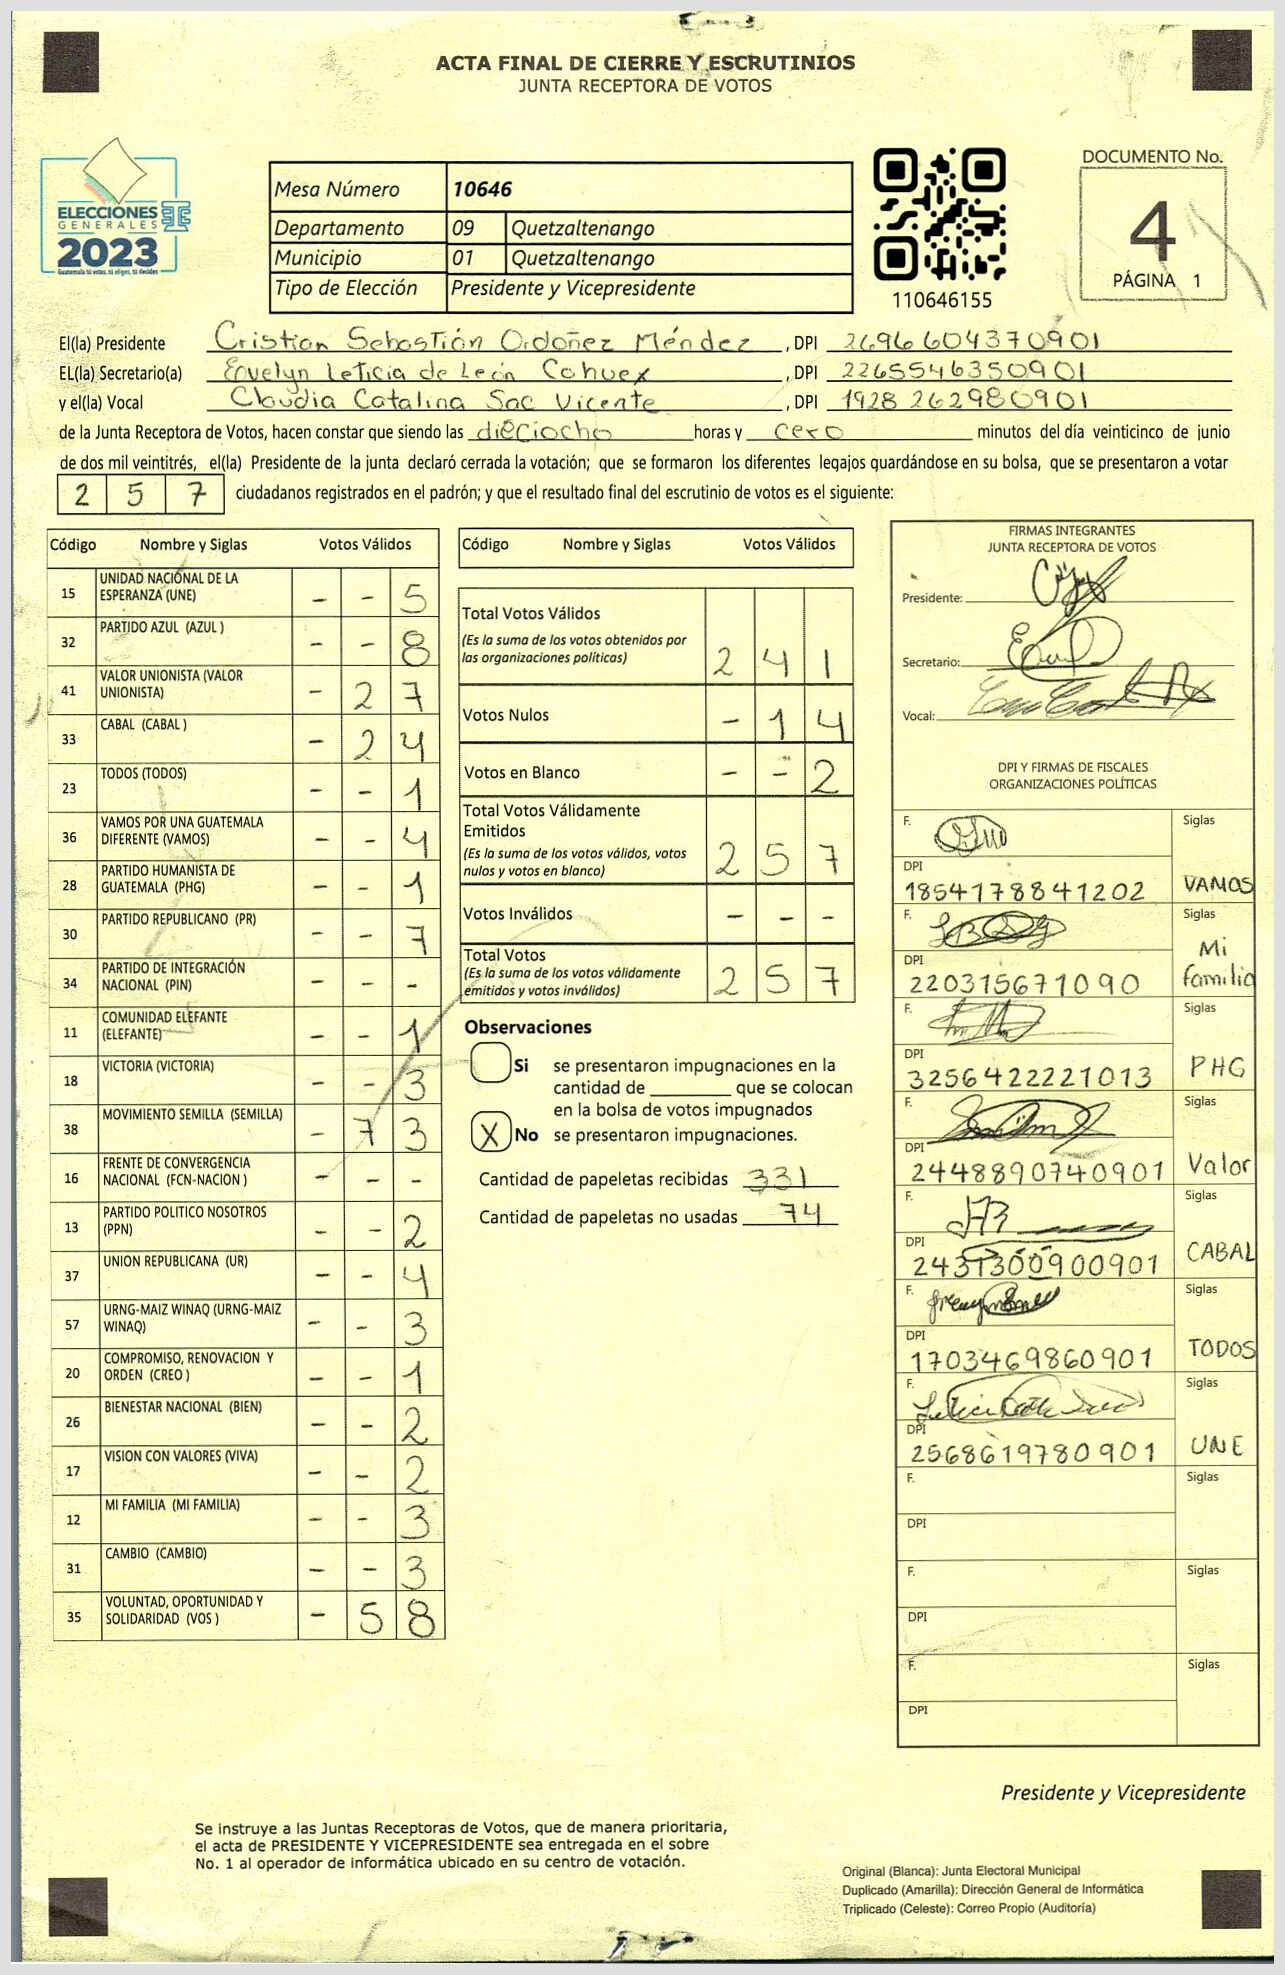 ACTA FINAL DE CIERRE Y ESCRUTINIOS
JUNTA RECEPTORA DE VOTOS
ELECCIONES
GENERALES
2023
Guatemala tú votas, tú eliges, tú decides
Mesa Número 10646
Departamento 09 Quetzaltenango
Municipio 01 Quetzaltenango
Tipo de Elección Presidente y Vicepresidente
110646155
DOCUMENTO No.
4
PÁGINA 1
El(la) Presidente Cristian Sebastián Ordoñez Méndez, DPI 2696604370901
EL(la) Secretario(a) Envelyn Leticia de León Cohuex, DPI 2265546350901
y el(la) Vocal Claudia Catalina Sac Vicente, DPI 1928262980901
de la Junta Receptora de Votos, hacen constar que siendo las dieciocho horas y cero minutos del día veinticinco de junio
de dos mil veintitrés, el(la) Presidente de la junta declaró cerrada la votación; que se formaron los diferentes legajos guardándose en su bolsa, que se presentaron a votar
2 5 7 ciudadanos registrados en el padrón; y que el resultado final del escrutinio de votos es el siguiente:
Código Nombre y Siglas Votos Válidos
15 UNIDAD NACIONAL DE LA ESPERANZA (UNE) - - 5
32 PARTIDO AZUL (AZUL ) - - 8
41 VALOR UNIONISTA (VALOR UNIONISTA) - 2 7
33 CABAL (CABAL ) - 2 4
23 TODOS (TODOS) - - 1
36 VAMOS POR UNA GUATEMALA DIFERENTE (VAMOS) - - 4
28 PARTIDO HUMANISTA DE GUATEMALA (PHG) - - 1
30 PARTIDO REPUBLICANO (PR) - - 7
34 PARTIDO DE INTEGRACIÓN NACIONAL (PIN) - - -
11 COMUNIDAD ELEFANTE (ELEFANTE) - - 1
18 VICTORIA (VICTORIA) - - 3
38 MOVIMIENTO SEMILLA (SEMILLA) - 7 3
16 FRENTE DE CONVERGENCIA NACIONAL (FCN-NACION ) - - -
13 PARTIDO POLITICO NOSOTROS (PPN) - - 2
37 UNION REPUBLICANA (UR) - - 4
57 URNG-MAIZ WINAQ (URNG-MAIZ WINAQ) - - 3
20 COMPROMISO, RENOVACION Y ORDEN (CREO ) - - 1
26 BIENESTAR NACIONAL (BIEN) - - 2
17 VISION CON VALORES (VIVA) - - 2
12 MI FAMILIA (MI FAMILIA) - - 3
31 CAMBIO (CAMBIO) - - 3
35 VOLUNTAD, OPORTUNIDAD Y SOLIDARIDAD (VOS ) - 5 8
Código Nombre y Siglas Votos Válidos
Total Votos Válidos
(Es la suma de los votos obtenidos por
las organizaciones políticas) 2 4 1
Votos Nulos - 1 4
Votos en Blanco - - 2
Total Votos Válidamente
Emitidos
(Es la suma de los votos válidos, votos
nulos y votos en blanco) 2 5 7
Votos Inválidos - - -
Total Votos
(Es la suma de los votos válidamente
emitidos y votos inválidos) 2 5 7
Observaciones
Si se presentaron impugnaciones en la
cantidad de ________ que se colocan
en la bolsa de votos impugnados
X No se presentaron impugnaciones.
Cantidad de papeletas recibidas 331
Cantidad de papeletas no usadas 74
FIRMAS INTEGRANTES
JUNTA RECEPTORA DE VOTOS
Presidente:
Secretario:
Vocal:
DPI Y FIRMAS DE FISCALES
ORGANIZACIONES POLÍTICAS
F. Siglas
DPI
1854178841202 VAMOS
F. Siglas
DPI Mi
220315671090 familia
F. Siglas
DPI
3256422221013 PHG
F. Siglas
DPI
2448890740901 Valor
F. Siglas
DPI
2431300900901 CABAL
F. Siglas
DPI
1703469860901 TODOS
F. Siglas
DPI
2568619780901 UNE
F. Siglas
DPI
F. Siglas
DPI
F. Siglas
DPI
Presidente y Vicepresidente
Se instruye a las Juntas Receptoras de Votos, que de manera prioritaria,
el acta de PRESIDENTE Y VICEPRESIDENTE sea entregada en el sobre
No. 1 al operador de informática ubicado en su centro de votación.
Original (Blanca): Junta Electoral Municipal
Duplicado (Amarilla): Dirección General de Informática
Triplicado (Celeste): Correo Propio (Auditoría)